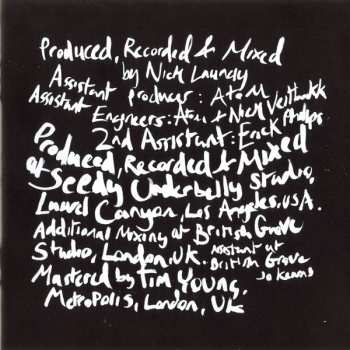 Produced, Recorded & Mixed
by Nick Launay
Assistant Producer: Atom
Assistant Engineers: Atom & Nick
2nd Assistant: Erick Phillips
Produced, Recorded & Mixed
at Seedy Underbelly Studio,
Laurel Canyon, Los Angeles, USA.
Additional Mixing at British Grove
Studio, London, UK. Assistant at
British Grove
Jo Kearns
Mastered by Tim Young.
Metropolis, London, UK